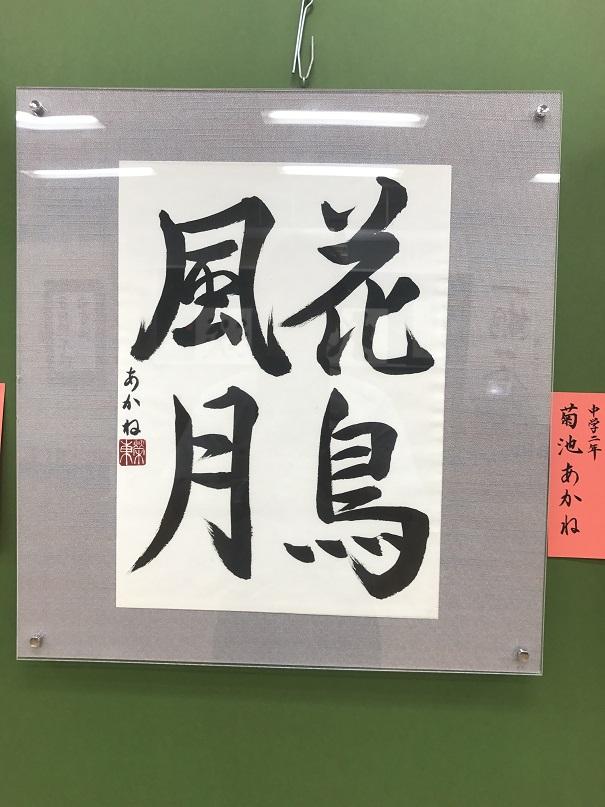 花鳥
風月
あかね
中学二年
菊池あかね